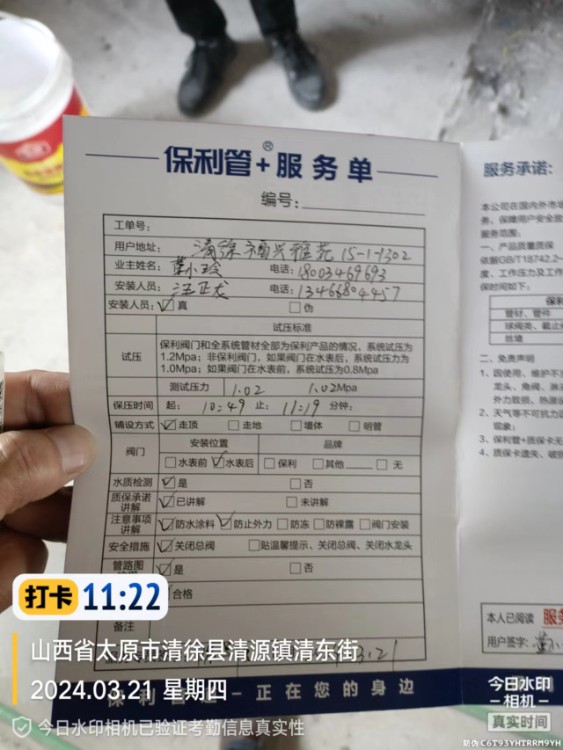 保利管+®服务单
编号:
工单号:
用户地址: 清徐福兴雅苑 15-1-1302
业主姓名: 董小玲 电话: 18003469693
安装人员: 汪正龙 电话: 13466804457
安装人员: ☑真 □伪
试压标准
试压 保利阀门和全系统管材全部为保利产品的情况,系统试压为
1.2Mpa; 非保利阀门,如果阀门在水表后,系统试压力为
1.0Mpa; 如果阀门在水表前,系统试压为0.8Mpa
测试压力 1.02 1.02Mpa
保压时间 起: 10:49 止: 11:19 分钟:
铺设方式 ☑走顶 □走地 □墙体 □明管
阀门 安装位置 品牌
□水表前 ☑水表后 □保利 □其他 □无
水质检测 ☑是 □否
质保承诺讲解 ☑已讲解 □未讲解
注意事项讲解 ☑防水涂料 ☑防止外力 □防冻 □防裸露 □阀门安装
安全措施 ☑关闭总阀 □贴温馨提示、关闭总阀、关闭水龙头
管路图 ☑是 □否
合格
备注
3.21
保利管 — 正在您的身边
服务承诺:
本公司在国内外市
务,保障用户安全
服务范围:
一、产品质量质保
依据GB/T18742.2-
度、工作压力及工作
保时间如下:
保利
管材、管件
球阀类、截止
丝堵
二、免责声明
1、因使用、维护不
龙头、角阀、淋
外力鼓损、热源
2、天气等不可抗力
现象;
3、保利管+质保卡无
4、质保卡遗失、破损
本人已阅读 服务
用户签字: 董小
打卡 11:22
山西省太原市清徐县清源镇清东街
2024.03.21 星期四
今日水印相机已验证考勤信息真实性
今日水印
相机
真实时间
防伪 C6T93YHTRRM9YH